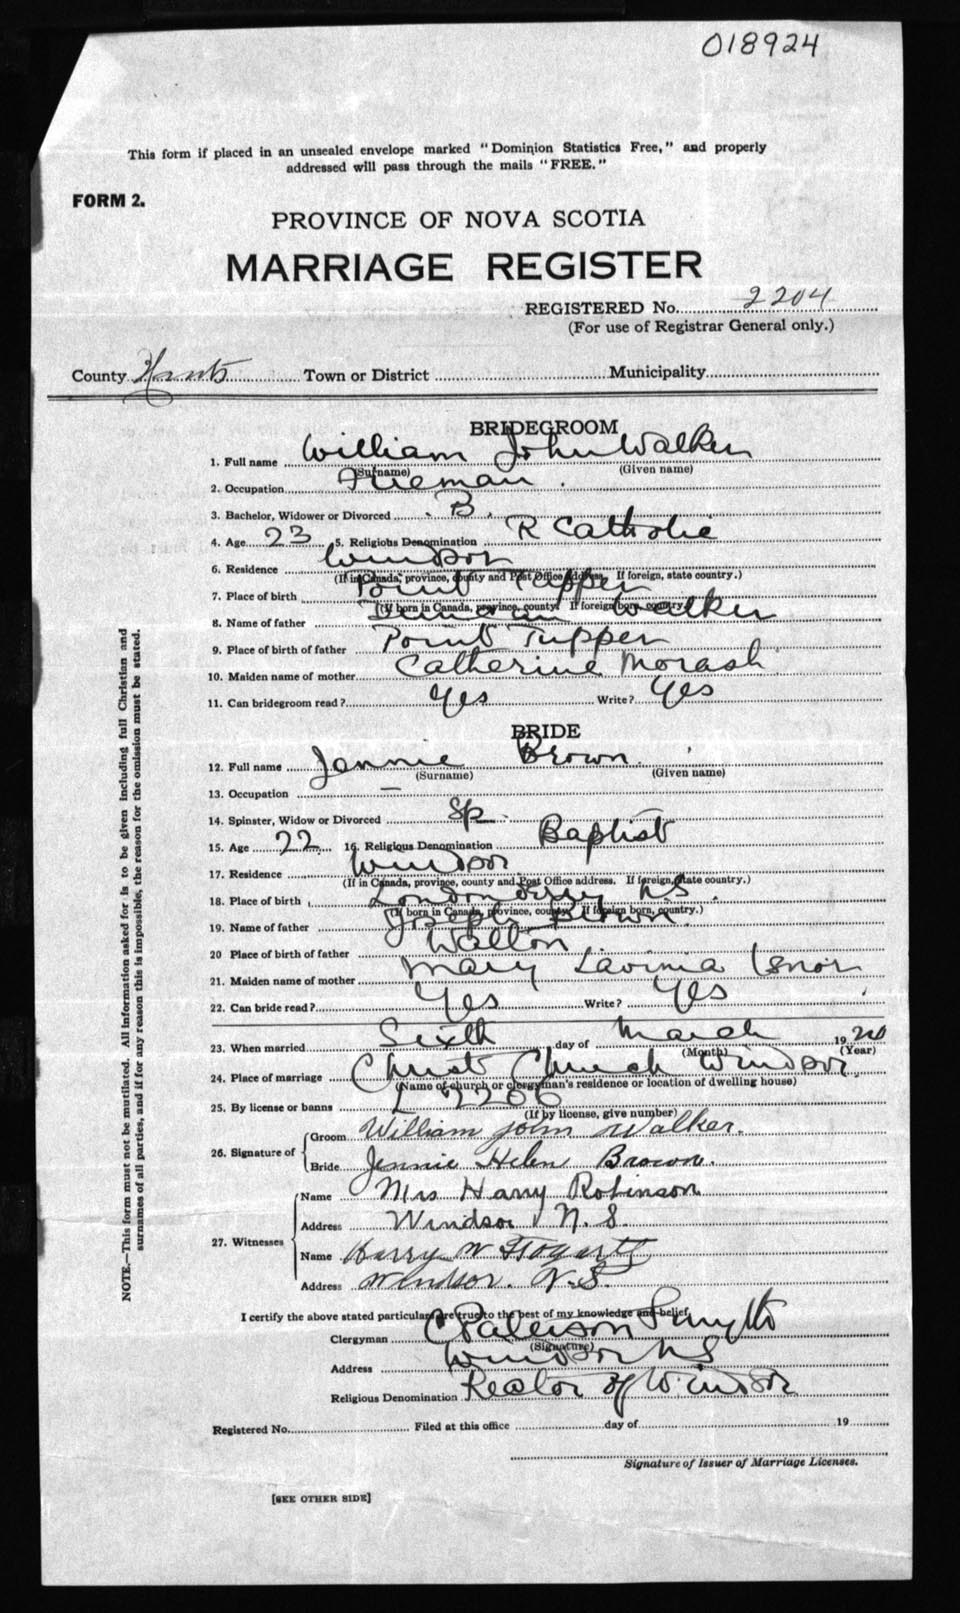 018924
This form if placed in an unsealed envelope marked "Dominion Statistics Free," and properly
addressed will pass through the mails "FREE."
FORM 2.
PROVINCE OF NOVA SCOTIA
MARRIAGE REGISTER
REGISTERED No. 2204
(For use of Registrar General only.)
County Hants Town or District Municipality
BRIDEGROOM
1. Full name William John Walker
(Surname) (Given name)
2. Occupation Fireman.
3. Bachelor, Widower or Divorced B.
4. Age 23 5. Religious Denomination R Catholic
6. Residence Windsor
(If in Canada, province, county and Post Office address. If foreign, state country.)
7. Place of birth Point Tupper
(If born in Canada, province, county. If foreign born, country.)
8. Name of father Duncan Walker
9. Place of birth of father Point Tupper
10. Maiden name of mother Catherine Morash
11. Can bridegroom read? Yes Write? Yes
BRIDE
12. Full name Jennie Brown.
(Surname) (Given name)
13. Occupation —
14. Spinster, Widow or Divorced Sp.
15. Age 22 16. Religious Denomination Baptist
17. Residence Windsor
(If in Canada, province, county and Post Office address. If foreign, state country.)
18. Place of birth Londonderry NS.
(If born in Canada, province, county. If foreign born, country.)
19. Name of father Joseph Brown.
20 Place of birth of father Walton
21. Maiden name of mother Mary Lavinia Isnor
22. Can bride read? Yes Write? Yes
23. When married Sixth day of March 1920
(Month) (Year)
24. Place of marriage Christ Church Windsor
(Name of church or clergyman's residence or location of dwelling house)
25. By license or banns L 2206
(If by license, give number)
26. Signature of Groom William John Walker.
Bride Jennie Helen Brown.
27. Witnesses Name Mrs Harry Robinson
Address Windsor N.S.
Name Harry W Fogarty
Address Windsor. N.S.
I certify the above stated particulars are true to the best of my knowledge and belief.
Clergyman C Patterson Smyth
(Signature)
Address Windsor NS
Religious Denomination Rector of Windsor
Registered No. Filed at this office day of 19
Signature of Issuer of Marriage Licenses.
[SEE OTHER SIDE]
NOTE.—This form must not be mutilated. All information asked for is to be given including full Christian and
surnames of all parties, and if for any reason this is impossible, the reason for the omission must be stated.